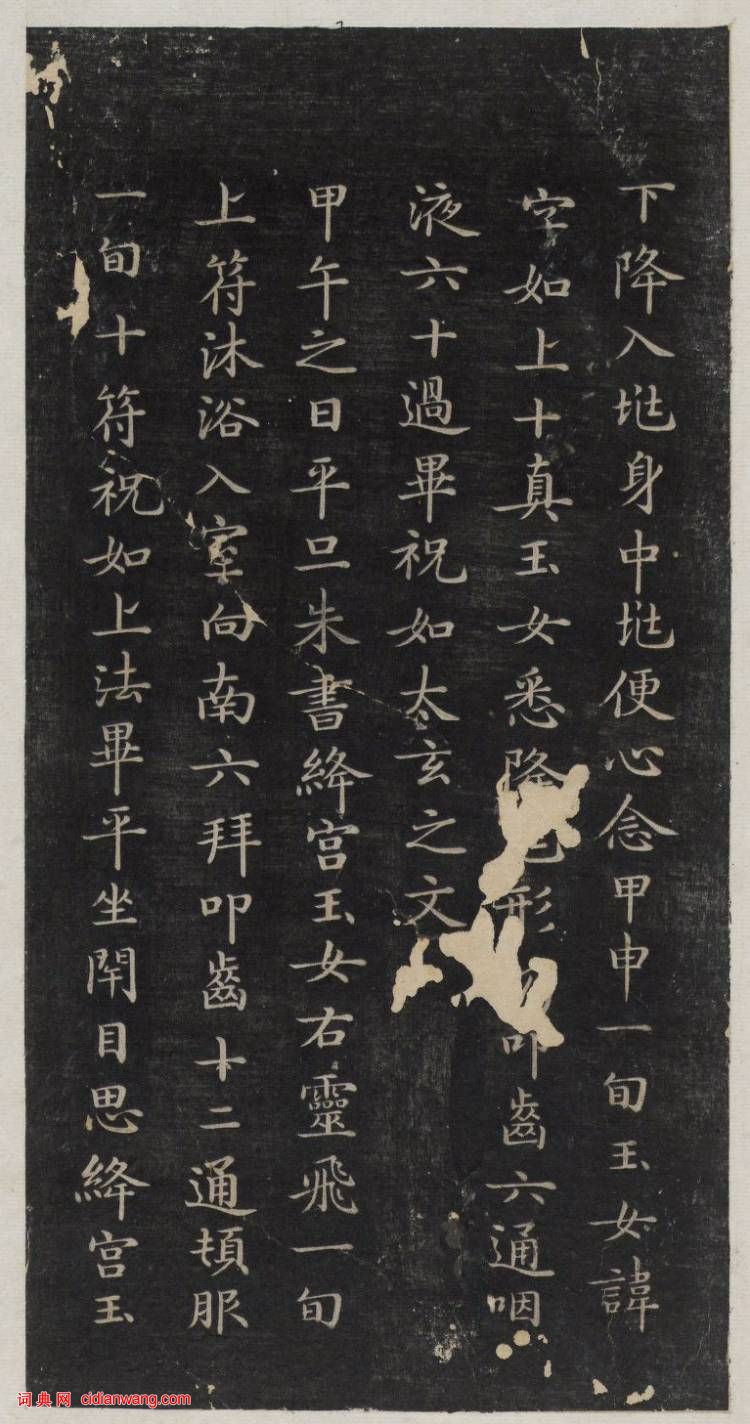 下降入兆身中兆便心念甲申一旬玉女諱
字如上十真玉女悉降形叩齒六通咽
液六十過畢祝如太玄之文
甲午之日平旦朱書絳宮玉女右靈飛一旬
上符沐浴入室向南六拜叩齒十二通頓服
一旬十符祝如上法畢平坐閇目思絳宮玉
词典网 cidianwang.com